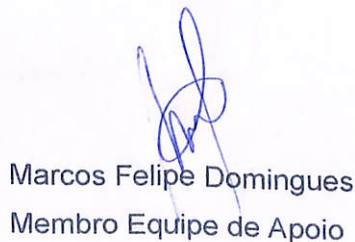 Marcos Felipe Domingues
Membro Equipe de Apoio